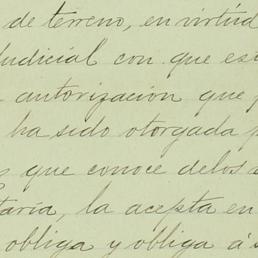 de terreno, en virtud
Judicial con que es
autorización que
ha sido otorgada p
que conoce delos
taría, la acepta en
obliga y obliga á s